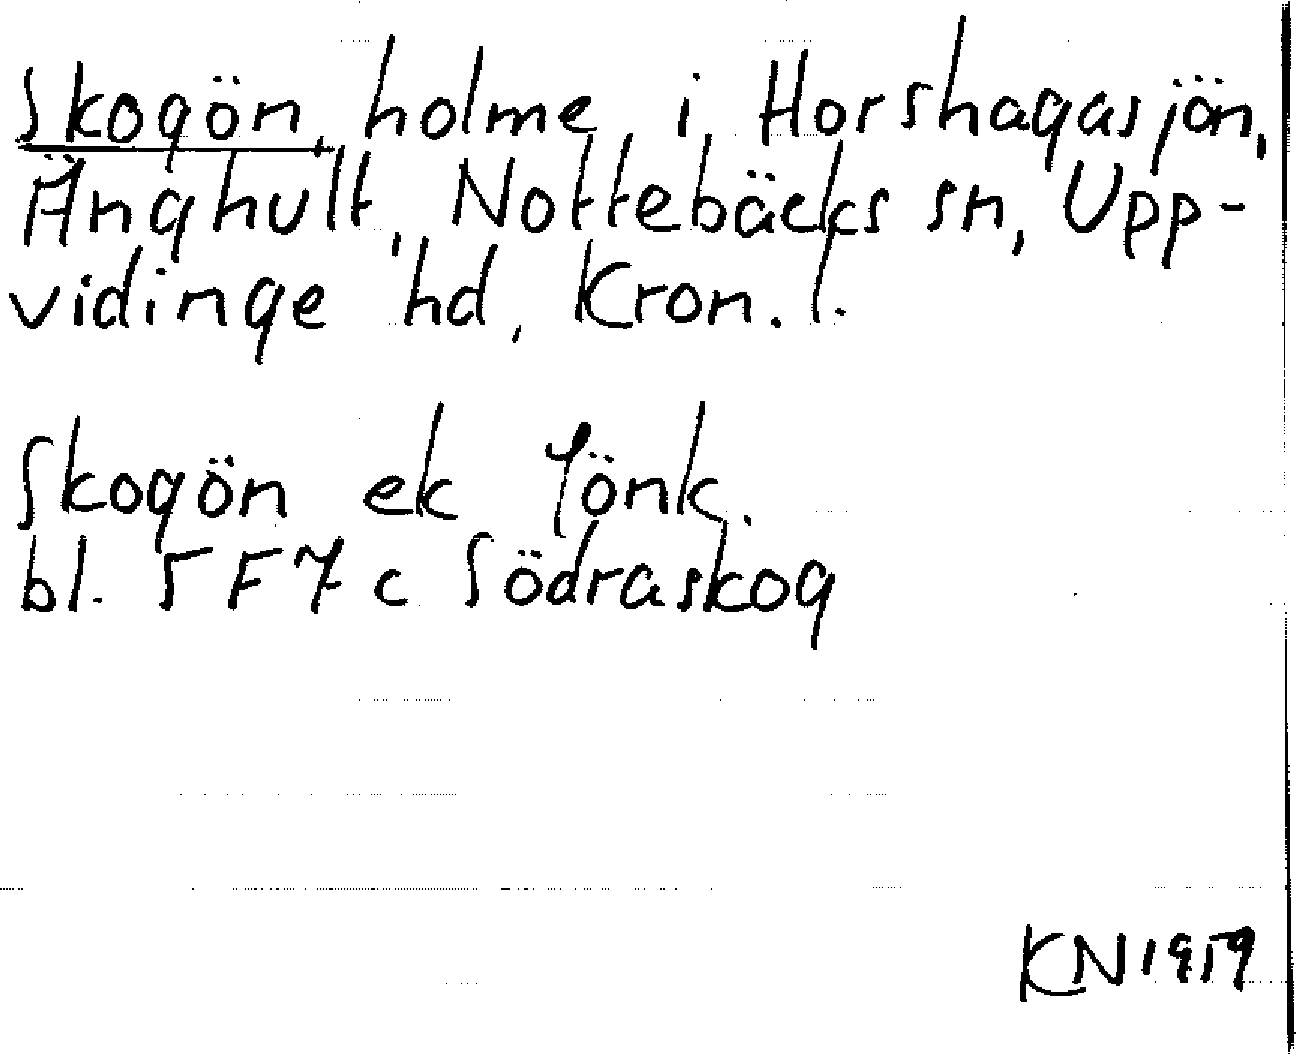 Skogön, holme, i Horshagasjön,
Änghult, Nottebäcks sn, Upp-
vidinge hd, Kron. l.
Skogön ek Jönk.
bl. 5F7c Södraskog
KN1959